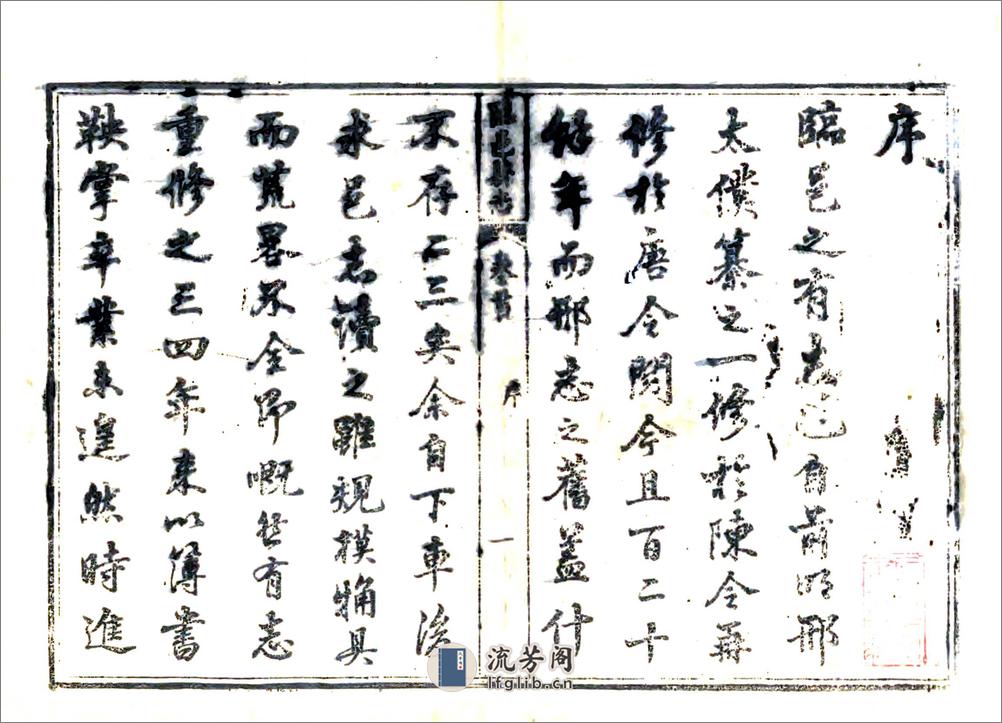 序
臨邑之有志也自前明邢
太僕纂之一修於陳令再
修於唐令閱今且百二十
餘年而邢志之舊蓋什
卷首
序
一
不存二三矣余自下車後
求邑志讀之雖規模犕具
而荒畧不全即嘅然有志
重修之三四年來以簿書
鞅掌卒業未遑然時進
流芳阁
lfglib.cn